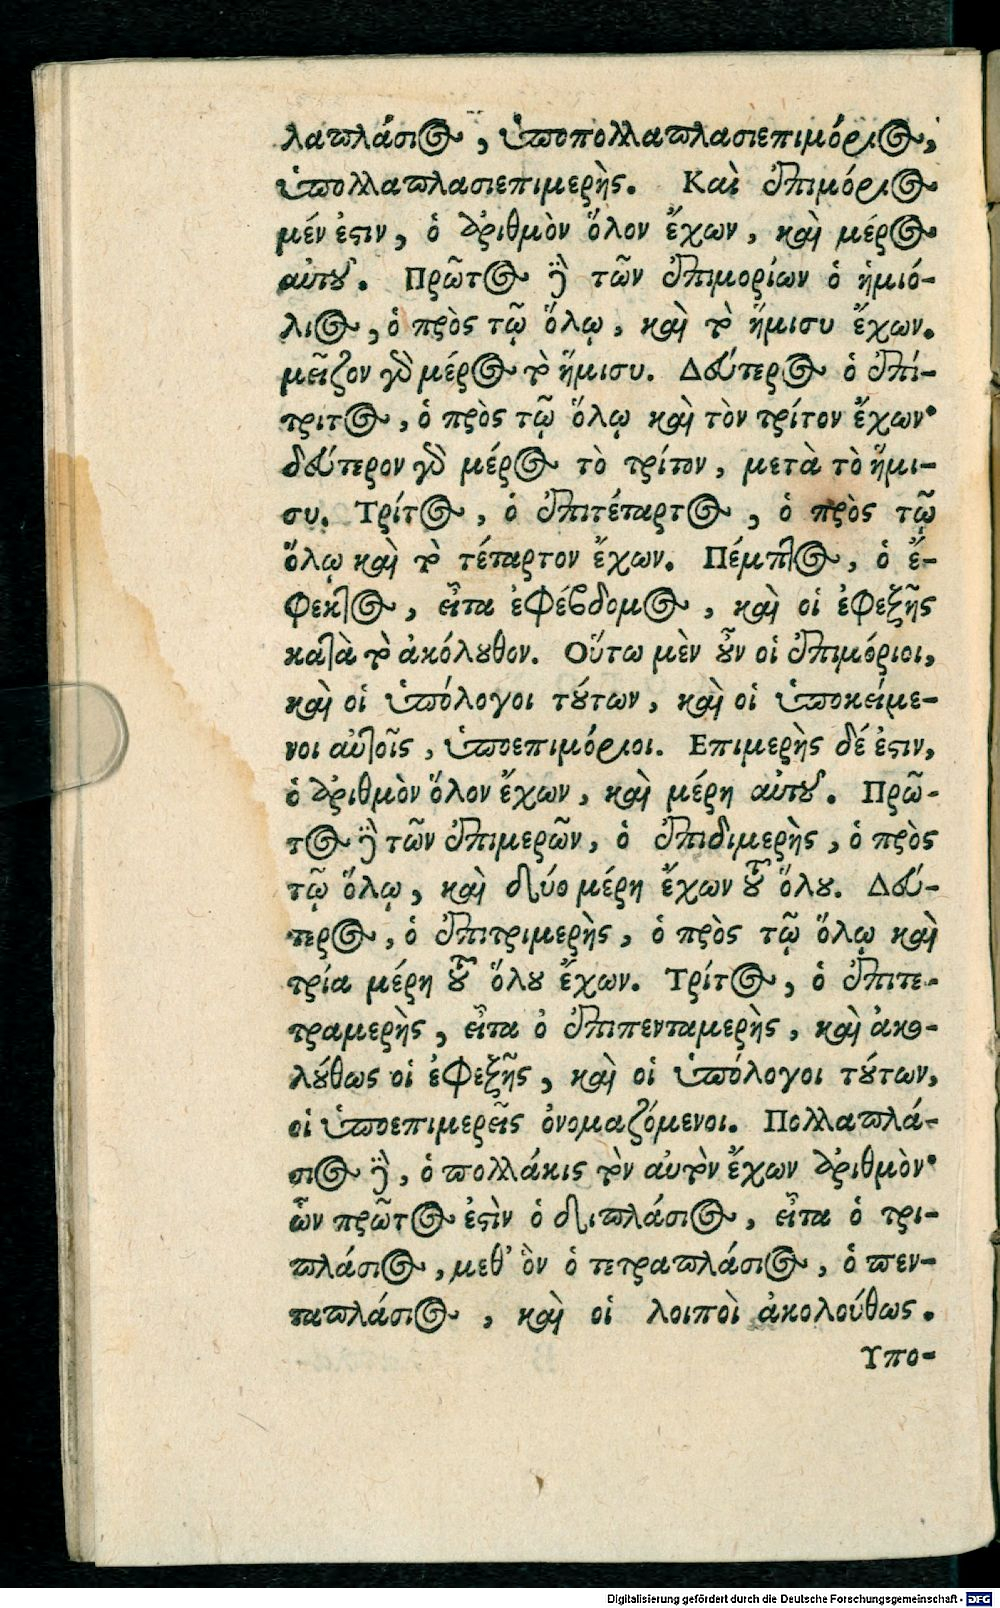 λαπλάσιος, ὑποπολλαπλασιεπιμόριος,
ὑπολλαπλασιεπιμερὴς. Καὶ ἐπιμόριος
μέν ἐστιν, ὁ ἀριθμὸν ὅλον ἔχων, καὶ μέρος
αὐτοῦ. Πρῶτος δὲ τῶν ἐπιμορίων ὁ ἡμιό-
λιος, ὁ πρὸς τῷ ὅλῳ, καὶ τὸ ἥμισυ ἔχων.
μεῖζον γὸ μέρος τὸ ἥμισυ. Δεύτερος ὁ ἐπί-
τριτος, ὁ πρὸς τῷ ὅλῳ καὶ τὸν τρίτον ἔχων·
δεύτερον γὸ μέρος τὸ τρίτον, μετὰ τὸ ἥμι-
συ. Τρίτος, ὁ ἐπιτέταρτος, ὁ πρὸς τῷ
ὅλῳ καὶ τὸ τέταρτον ἔχων. Πέμπτος, ὁ ἔ-
φεκτος, εἶτα ἐφέβδομος, καὶ οἱ ἐφεξῆς
κατὰ τὸ ἀκόλουθον. Οὕτω μὲν οὖν οἱ ἐπιμόριοι,
καὶ οἱ ὑπόλογοι τούτων, καὶ οἱ ὑποκείμε-
νοι αὐτοῖς, ὑποεπιμόριοι. Επιμερὴς δέ ἐστιν,
ὁ ἀριθμὸν ὅλον ἔχων, καὶ μέρη αὐτοῦ. Πρῶ-
τος δὲ τῶν ἐπιμερῶν, ὁ ἐπιδιμερὴς, ὁ πρὸς
τῷ ὅλῳ, καὶ δύο μέρη ἔχων τοῦ ὅλου. Δεύ-
τερος, ὁ ἐπιτριμερὴς, ὁ πρὸς τῷ ὅλῳ καὶ
τρία μέρη τοῦ ὅλου ἔχων. Τρίτος, ὁ ἐπιτε-
τραμερὴς, εἶτα ὁ ἐπιπενταμερὴς, καὶ ἀκο-
λούθως οἱ ἐφεξῆς, καὶ οἱ ὑπόλογοι τούτων,
οἱ ὑποεπιμερεῖς ὀνομαζόμενοι. Πολλαπλά-
σιος δὲ, ὁ πολλάκις τὸν αὐτὸν ἔχων ἀριθμὸν·
ὧν πρῶτος ἐστὶν ὁ διπλάσιος, εἶτα ὁ τρι-
πλάσιος, μεθ' ὃν ὁ τετραπλάσιος, ὁ πεν-
ταπλάσιος, καὶ οἱ λοιποὶ ἀκολούθως.
Υπο-
Digitalisierung gefördert durch die Deutsche Forschungsgemeinschaft - DFG